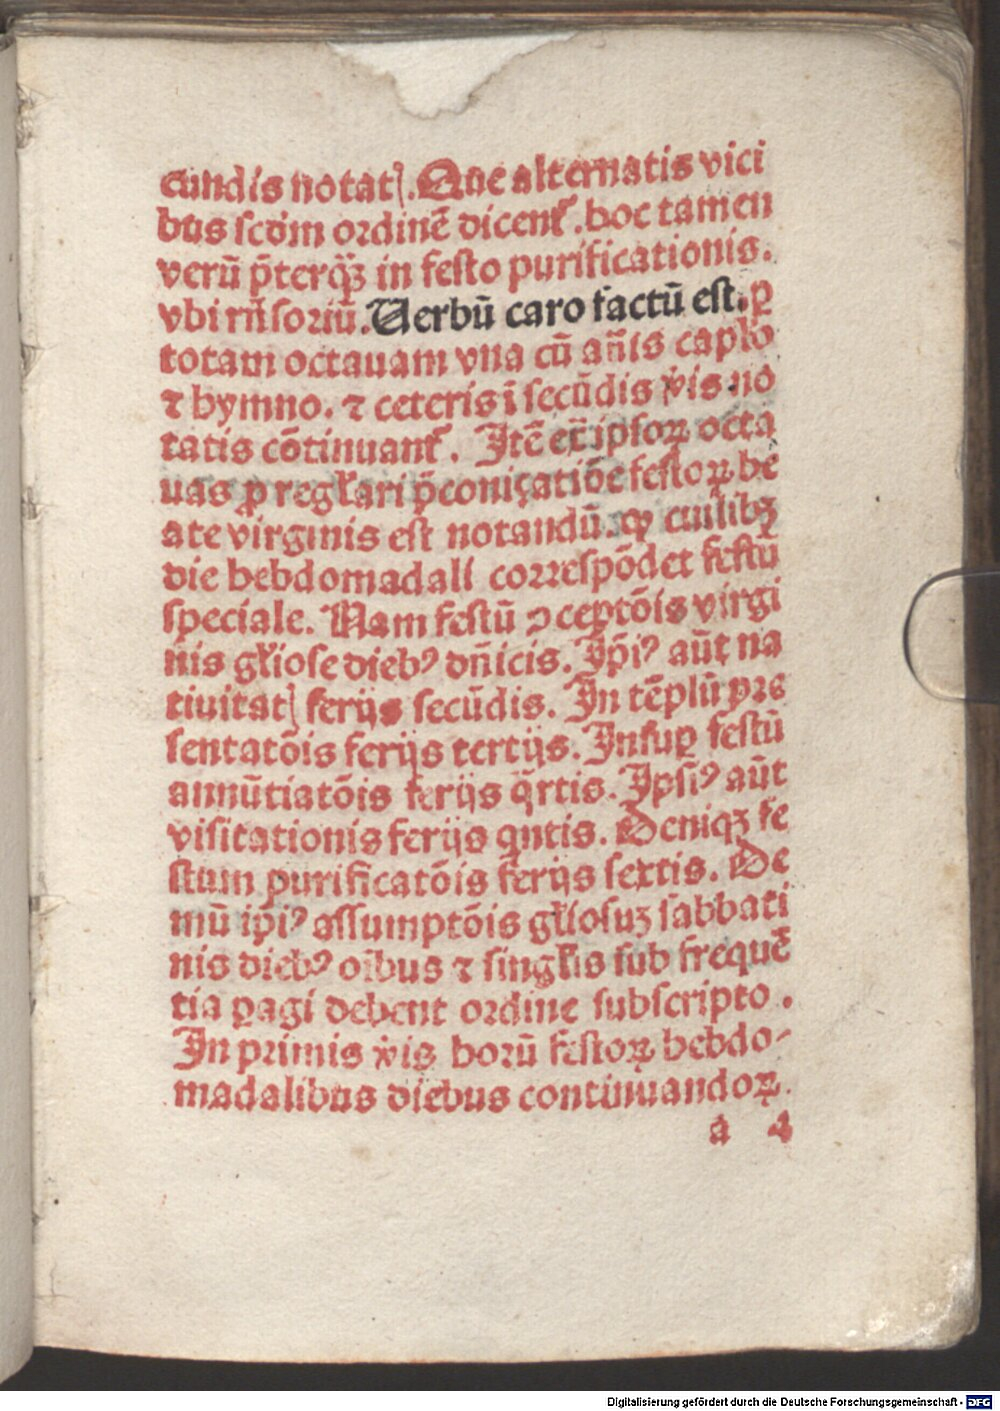 cundis notatꝭ. Que alternatis vici
bus scd̓m ordinē dicent᷑. hoc tamen
verū p̄terqȝ in festo purificationis.
vbi rn̄soriū. Verbū caro factū est. ꝑ
totam octauam vna cū an̄is caplo
⁊ hymno. ⁊ ceteris ī secūdis v̓is no
tatis cōtinuant᷑. Itē ipsoꝝ octa
uas ꝓ regl̓ari p̄conicatiōe festoꝝ be
ate virginis est notandū. ꝙ cuilibȝ
die hebdomadali correspōdet festū
speciale. Nam festū ꝯceptōis virgi
nis gl̓iose diebꝰ dn̄icis. Ip̄iꝰ aūt na
tiuitatꝭ ferijs secūdis. In tēplū pre
sentatōis ferijs tertijs. Insuꝑ festū
annūtiatōis ferijs q̄rtis. Ipsiꝰ aūt
visitationis ferijs qntis. Deniqȝ fe
stum purificatōis ferijs sextis. De
mū ip̄iꝰ assumptōis gl̓iosuȝ sabbati
nis diebꝰ oībus ⁊ singl̓is sub frequē
tia ꝑagi debent ordine subscripto.
In primis v̓is horū festoꝝ hebdo-
madalibus diebus continuandoꝝ.
a 4
Digitalisierung gefördert durch die Deutsche Forschungsgemeinschaft - DFG